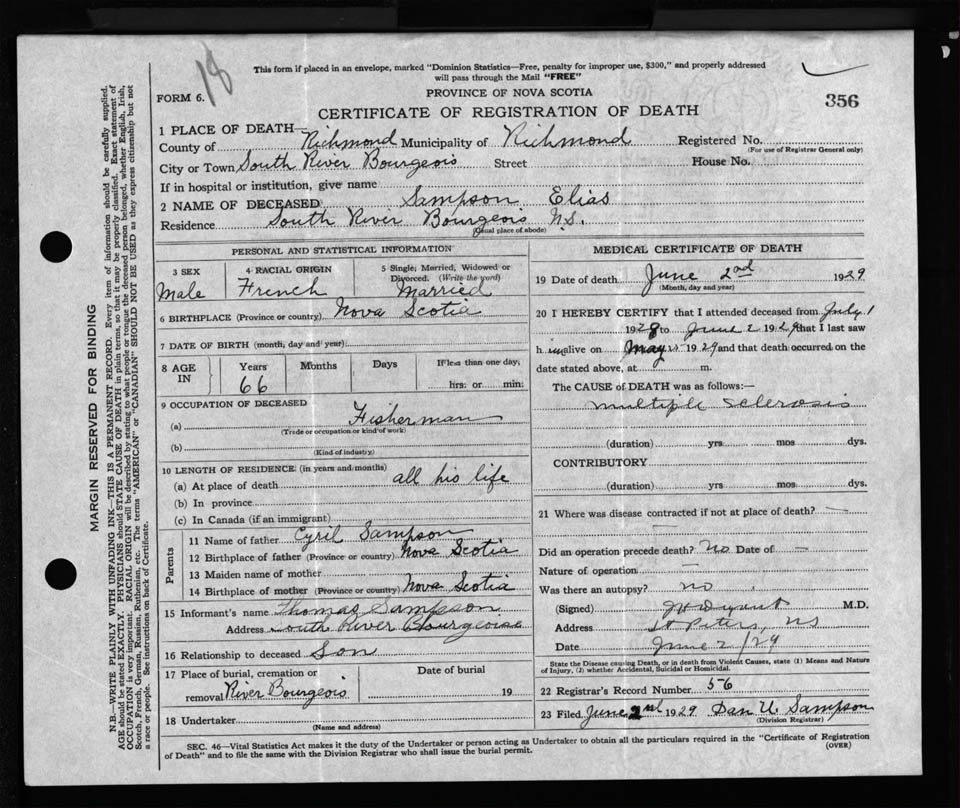 18
This form if placed in an envelope, marked "Dominion Statistics—Free, penalty for improper use, $300," and properly addressed
will pass through the Mail "FREE"
FORM 6.
PROVINCE OF NOVA SCOTIA
356
CERTIFICATE OF REGISTRATION OF DEATH
1 PLACE OF DEATH—
County of Richmond Municipality of Richmond Registered No.
(For use of Registrar General only)
City or Town South River Bourgeois Street House No.
If in hospital or institution, give name
2 NAME OF DECEASED Sampson Elias
Residence South River Bourgeois N.S.
(Usual place of abode)
PERSONAL AND STATISTICAL INFORMATION
3 SEX 4 RACIAL ORIGIN 5 Single, Married, Widowed or
Divorced. (Write the word)
Male French Married
6 BIRTHPLACE (Province or country) Nova Scotia
7 DATE OF BIRTH (month, day and year)
8 AGE IN Years Months Days If less than one day,
66 hrs. or min.
9 OCCUPATION OF DECEASED
(a) Fisherman
(Trade or occupation or kind of work)
(b)
(Kind of industry)
10 LENGTH OF RESIDENCE (in years and months)
(a) At place of death all his life
(b) In province
(c) In Canada (if an immigrant)
Parents
11 Name of father Cyril Sampson
12 Birthplace of father (Province or country) Nova Scotia
13 Maiden name of mother
14 Birthplace of mother (Province or country) Nova Scotia
15 Informant's name Thomas Sampson
Address South River Bourgeois
16 Relationship to deceased Son
17 Place of burial, cremation or Date of burial
removal River Bourgeois 19
18 Undertaker
(Name and address)
MEDICAL CERTIFICATE OF DEATH
19 Date of death June 2nd 1929
(Month, day and year)
20 I HEREBY CERTIFY that I attended deceased from July 1
1928 to June 2 1929 that I last saw
him alive on May 1929 and that death occurred on the
date stated above, at m.
The CAUSE of DEATH was as follows:—
multiple sclerosis
(duration) yrs mos dys.
CONTRIBUTORY
(duration) yrs. mos dys.
21 Where was disease contracted if not at place of death? —
Did an operation precede death? No Date of —
Nature of operation —
Was there an autopsy? no
(Signed) M.D.
Address St Peters, NS
Date June 2/29
State the Disease causing Death, or in death from Violent Causes, state (1) Means and Nature
of Injury, (2) whether Accidental, Suicidal or Homicidal.
22 Registrar's Record Number 56
23 Filed June 2nd 1929 Dan U. Sampson
(Division Registrar)
SEC. 46—Vital Statistics Act makes it the duty of the Undertaker or person acting as Undertaker to obtain all the particulars required in the "Certificate of Registration
of Death" and to file the same with the Division Registrar who shall issue the burial permit.
(OVER)
MARGIN RESERVED FOR BINDING
N.B.—WRITE PLAINLY WITH UNFADING INK—THIS IS A PERMANENT RECORD. Every item of information should be carefully supplied.
AGE should be stated EXACTLY. PHYSICIANS should STATE CAUSE OF DEATH in plain terms, so that it may be properly classified. Exact statement of
OCCUPATION is very important. RACIAL ORIGIN will be described by stating to what people or tongue the deceased person belonged, whether English, Irish,
Scotch, French, German, Russian, Ruthenian, etc. The terms "AMERICAN" or "CANADIAN" SHOULD NOT BE USED as they express citizenship but not
a race or people. See instructions on back of Certificate.